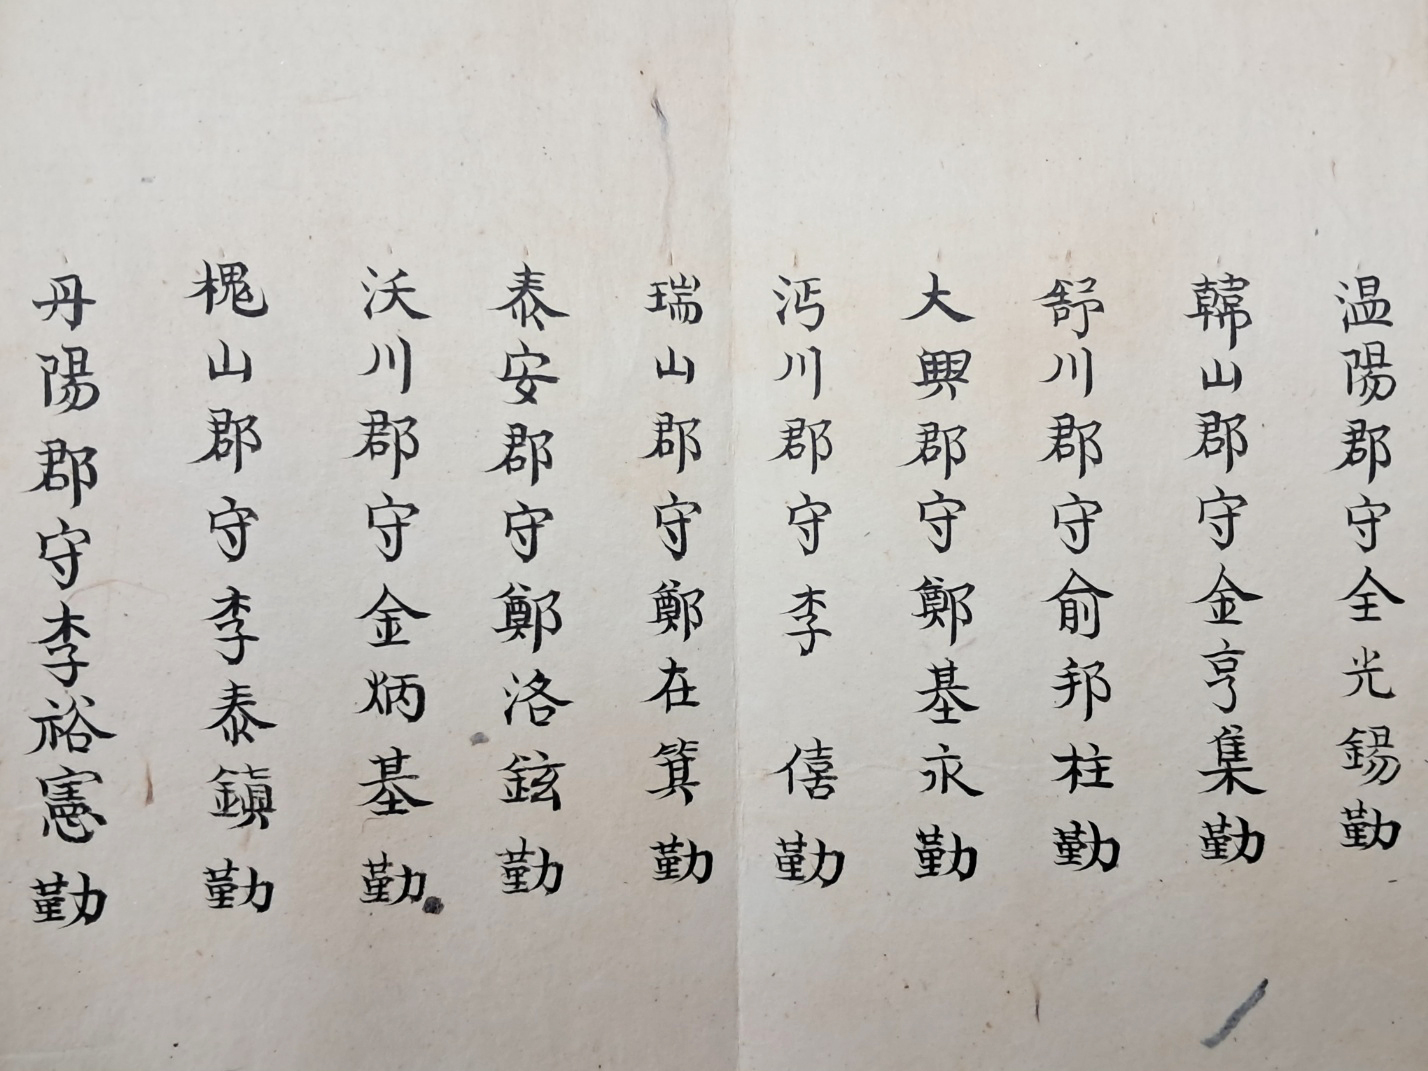 温陽郡守全光錫勤
韓山郡守金亨集勤
舒川郡守俞邦柱勤
大興郡守鄭基永勤
沔川郡守李僖勤
瑞山郡守鄭在箕勤
泰安郡守鄭洛鉉勤
沃川郡守金炳基勤
槐山郡守李泰鎮勤
丹陽郡守李裕憲勤